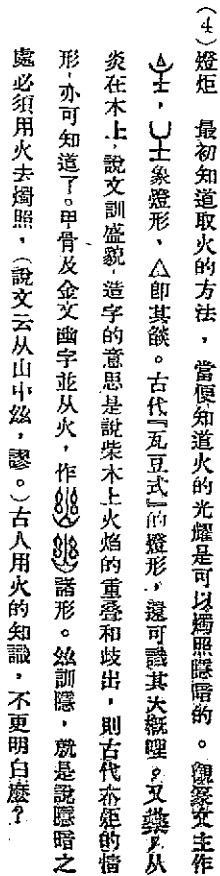 （4）燈炬　最初知道取火的方法，當便知道火的光耀是可以燭照隱暗的。觀篆文主作
，象燈形，△即其燄。古代『瓦豆式』的燈形，還可識其大概哩。又爇，从
炎在木上，說文訓盛貌，造字的意思是說柴木上火焰的重叠和歧出，則古代布炬的情
形，亦可知道了。甲骨及金文幽字並从火，作諸形。玆訓隱，就是說隱暗之
處必須用火去燭照，（說文云从山中玆，謬。）古人用火的知識，不更明白麼？